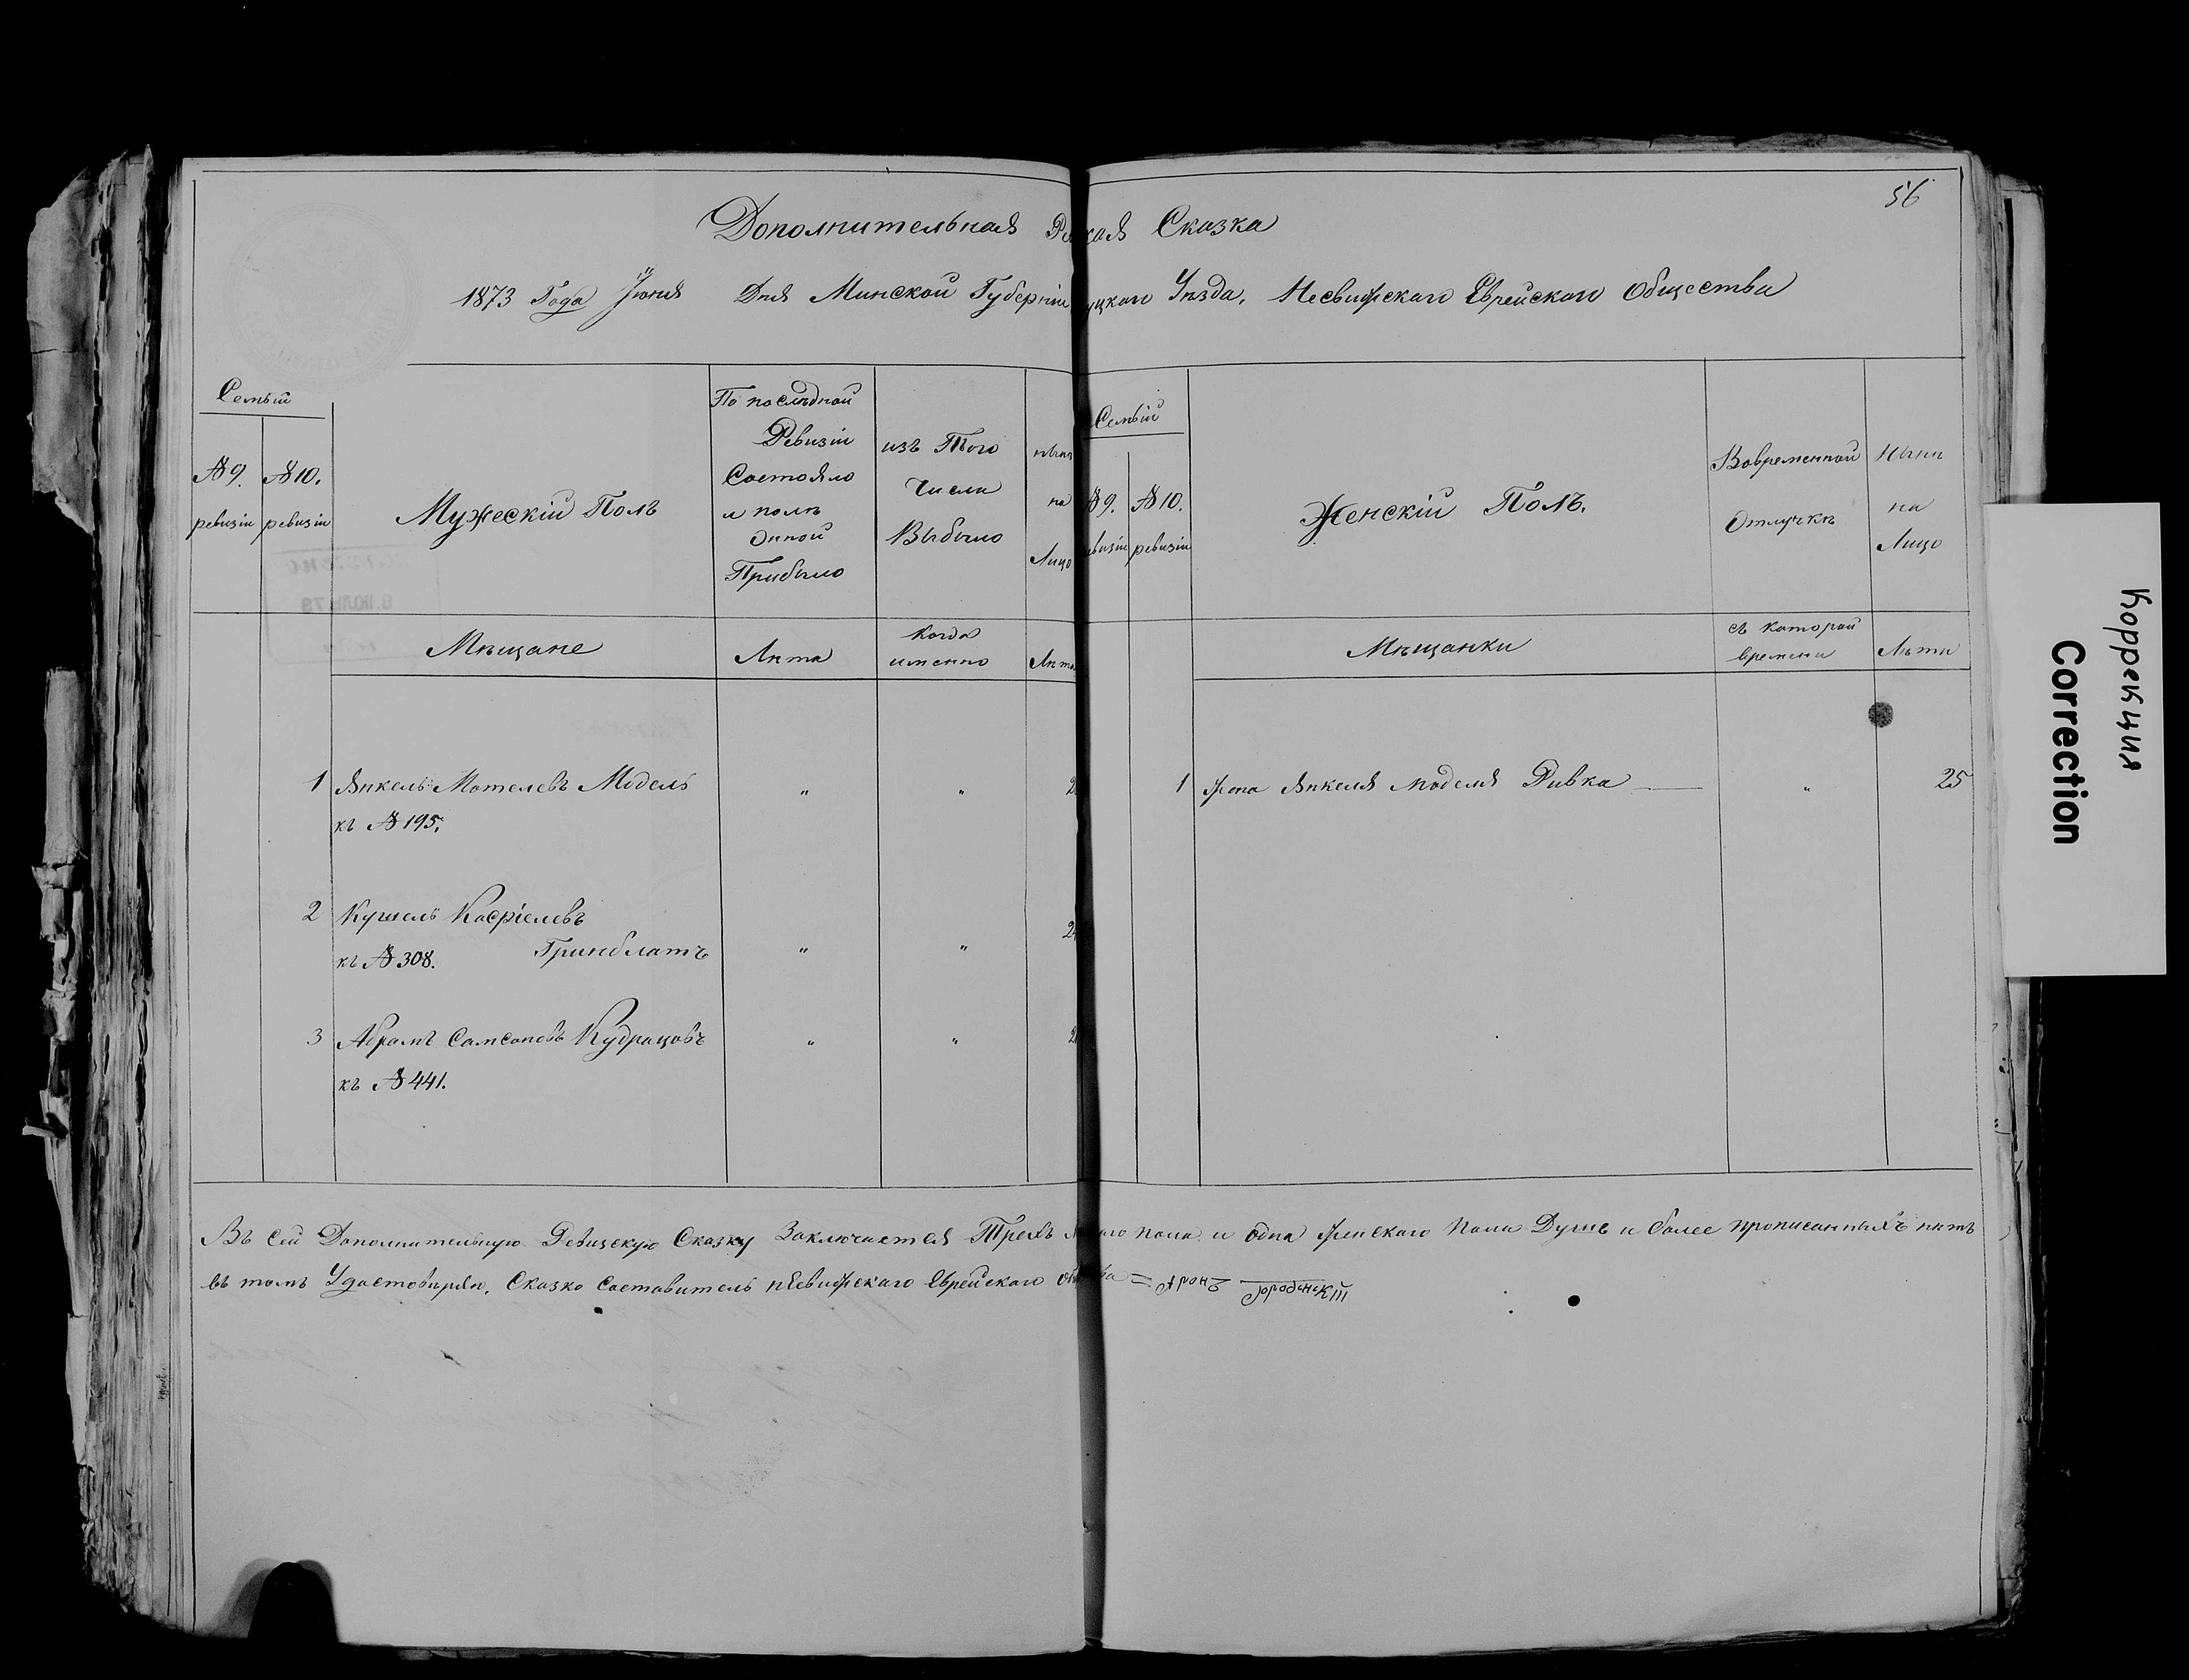 56
Дополнительная Р кая Сказка
1873 Года Іюня Дня Минской Губерніи уцкаго Уѣзда, Несвижскаго Еврейскаго Общества
Семьи
№ 9. ревизіи
№ 10. ревизіи
Мужескій Полъ
По послѣдной
Ревизіи
Состояло
и полѣ
оной
Прибыло
изъ Того
Числа
Выбыло
на
Лицо
Семьи
№ 9. евизіи
№ 10. ревизіи
Женскій Полъ.
Вовременной
Отлучкѣ
Нынѣ
на
Лицо
Мѣщане
Лѣта
когда
именно
Лѣта
Мѣщанки
съ которай
времени
Лѣта
1 Янкель Мотелевъ Модель " "
къ № 195.
1 жена Янкеля Моделя Ривка " 25
2 Кушель Касріелевъ
къ № 308. Гринблатъ " "
3 Абрамъ Самсоновъ Кудрацовъ " "
къ № 441.
Въ сей Дополнительную Ревизскую Сказку Заключается Трехъ М аго пола и одна женскаго Пола Душъ и более прописанныхъ нѣтъ
въ томъ Удостовѣряю, Сказко Составитель Несвижскаго Еврейскаго об ва = Аронъ Городенскій
Коррекция
Correction